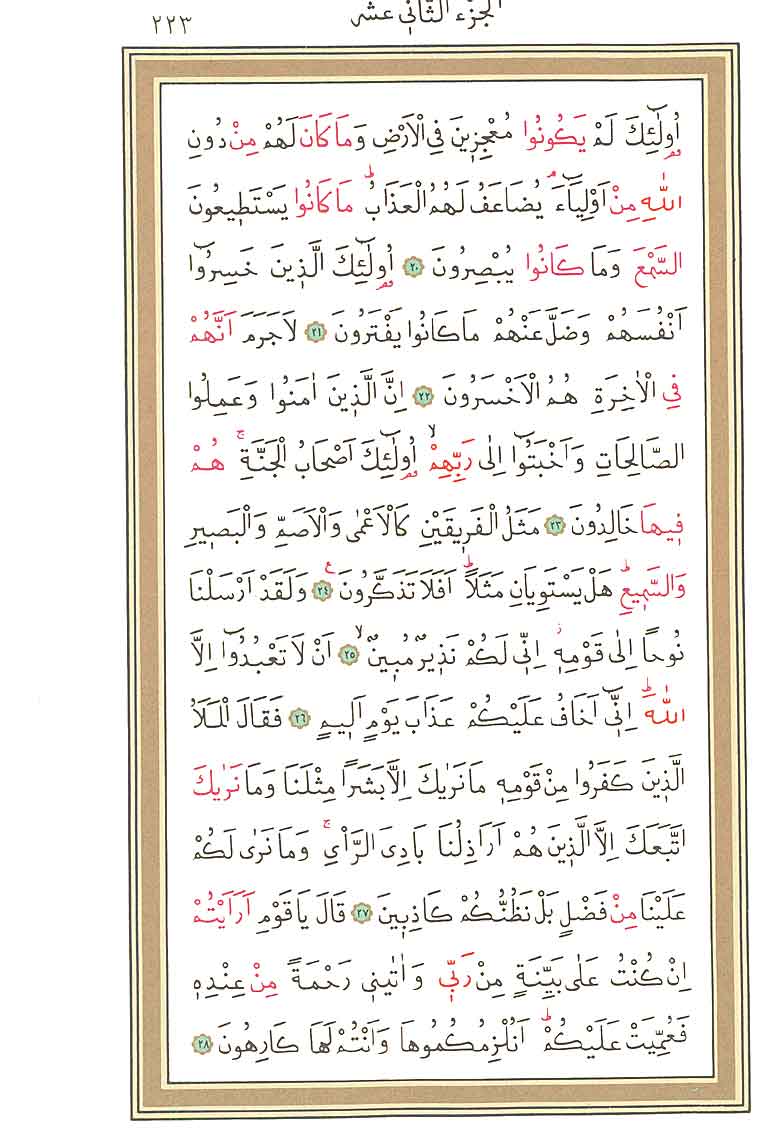 الجزء الثاني عشر
٢٢٣
اُو۬لٰٓئِكَ لَمْ يَكُونُوا مُعْجِز۪ينَ فِي الْاَرْضِ وَمَا كَانَ لَهُمْ مِنْ دُونِ
اللّٰهِ مِنْ اَوْلِيَٓاءَۢ يُضَاعَفُ لَهُمُ الْعَذَابُۜ مَا كَانُوا يَسْتَط۪يعُونَ
السَّمْعَ وَمَا كَانُوا يُبْصِرُونَ ﴿٢٠﴾ اُو۬لٰٓئِكَ الَّذ۪ينَ خَسِرُٓوا
اَنْفُسَهُمْ وَضَلَّ عَنْهُمْ مَا كَانُوا يَفْتَرُونَ ﴿٢١﴾ لَا جَرَمَ اَنَّهُمْ
فِي الْاٰخِرَةِ هُمُ الْاَخْسَرُونَ ﴿٢٢﴾ اِنَّ الَّذ۪ينَ اٰمَنُوا وَعَمِلُوا
الصَّالِحَاتِ وَاَخْبَتُٓوا اِلٰى رَبِّهِمْۙ اُو۬لٰٓئِكَ اَصْحَابُ الْجَنَّةِۚ هُمْ
ف۪يهَا خَالِدُونَ ﴿٢٣﴾ مَثَلُ الْفَر۪يقَيْنِ كَالْاَعْمٰى وَالْاَصَمِّ وَالْبَص۪يرِ
وَالسَّم۪يعِۜ هَلْ يَسْتَوِيَانِ مَثَلاًۜ اَفَلَا تَذَكَّرُونَ۟ ﴿٢٤﴾ وَلَقَدْ اَرْسَلْنَا
نُوحاً اِلٰى قَوْمِه۪ۘ اِنّ۪ي لَكُمْ نَذ۪يرٌ مُب۪ينٌۙ ﴿٢٥﴾ اَنْ لَا تَعْبُدُٓوا اِلَّا
اللّٰهَۜ اِنّ۪ٓي اَخَافُ عَلَيْكُمْ عَذَابَ يَوْمٍ اَل۪يمٍ ﴿٢٦﴾ فَقَالَ الْمَلَاُ
الَّذ۪ينَ كَفَرُوا مِنْ قَوْمِه۪ مَا نَرٰيكَ اِلَّا بَشَراً مِثْلَنَا وَمَا نَرٰيكَ
اتَّبَعَكَ اِلَّا الَّذ۪ينَ هُمْ اَرَاذِلُنَا بَادِيَ الرَّأْيِۚ وَمَا نَرٰى لَكُمْ
عَلَيْنَا مِنْ فَضْلٍ بَلْ نَظُنُّكُمْ كَاذِب۪ينَ ﴿٢٧﴾ قَالَ يَا قَوْمِ اَرَاَيْتُمْ
اِنْ كُنْتُ عَلٰى بَيِّنَةٍ مِنْ رَبّ۪ي وَاٰتٰين۪ي رَحْمَةً مِنْ عِنْدِه۪
فَعُمِّيَتْ عَلَيْكُمْۜ اَنُلْزِمُكُمُوهَا وَاَنْتُمْ لَهَا كَارِهُونَ ﴿٢٨﴾